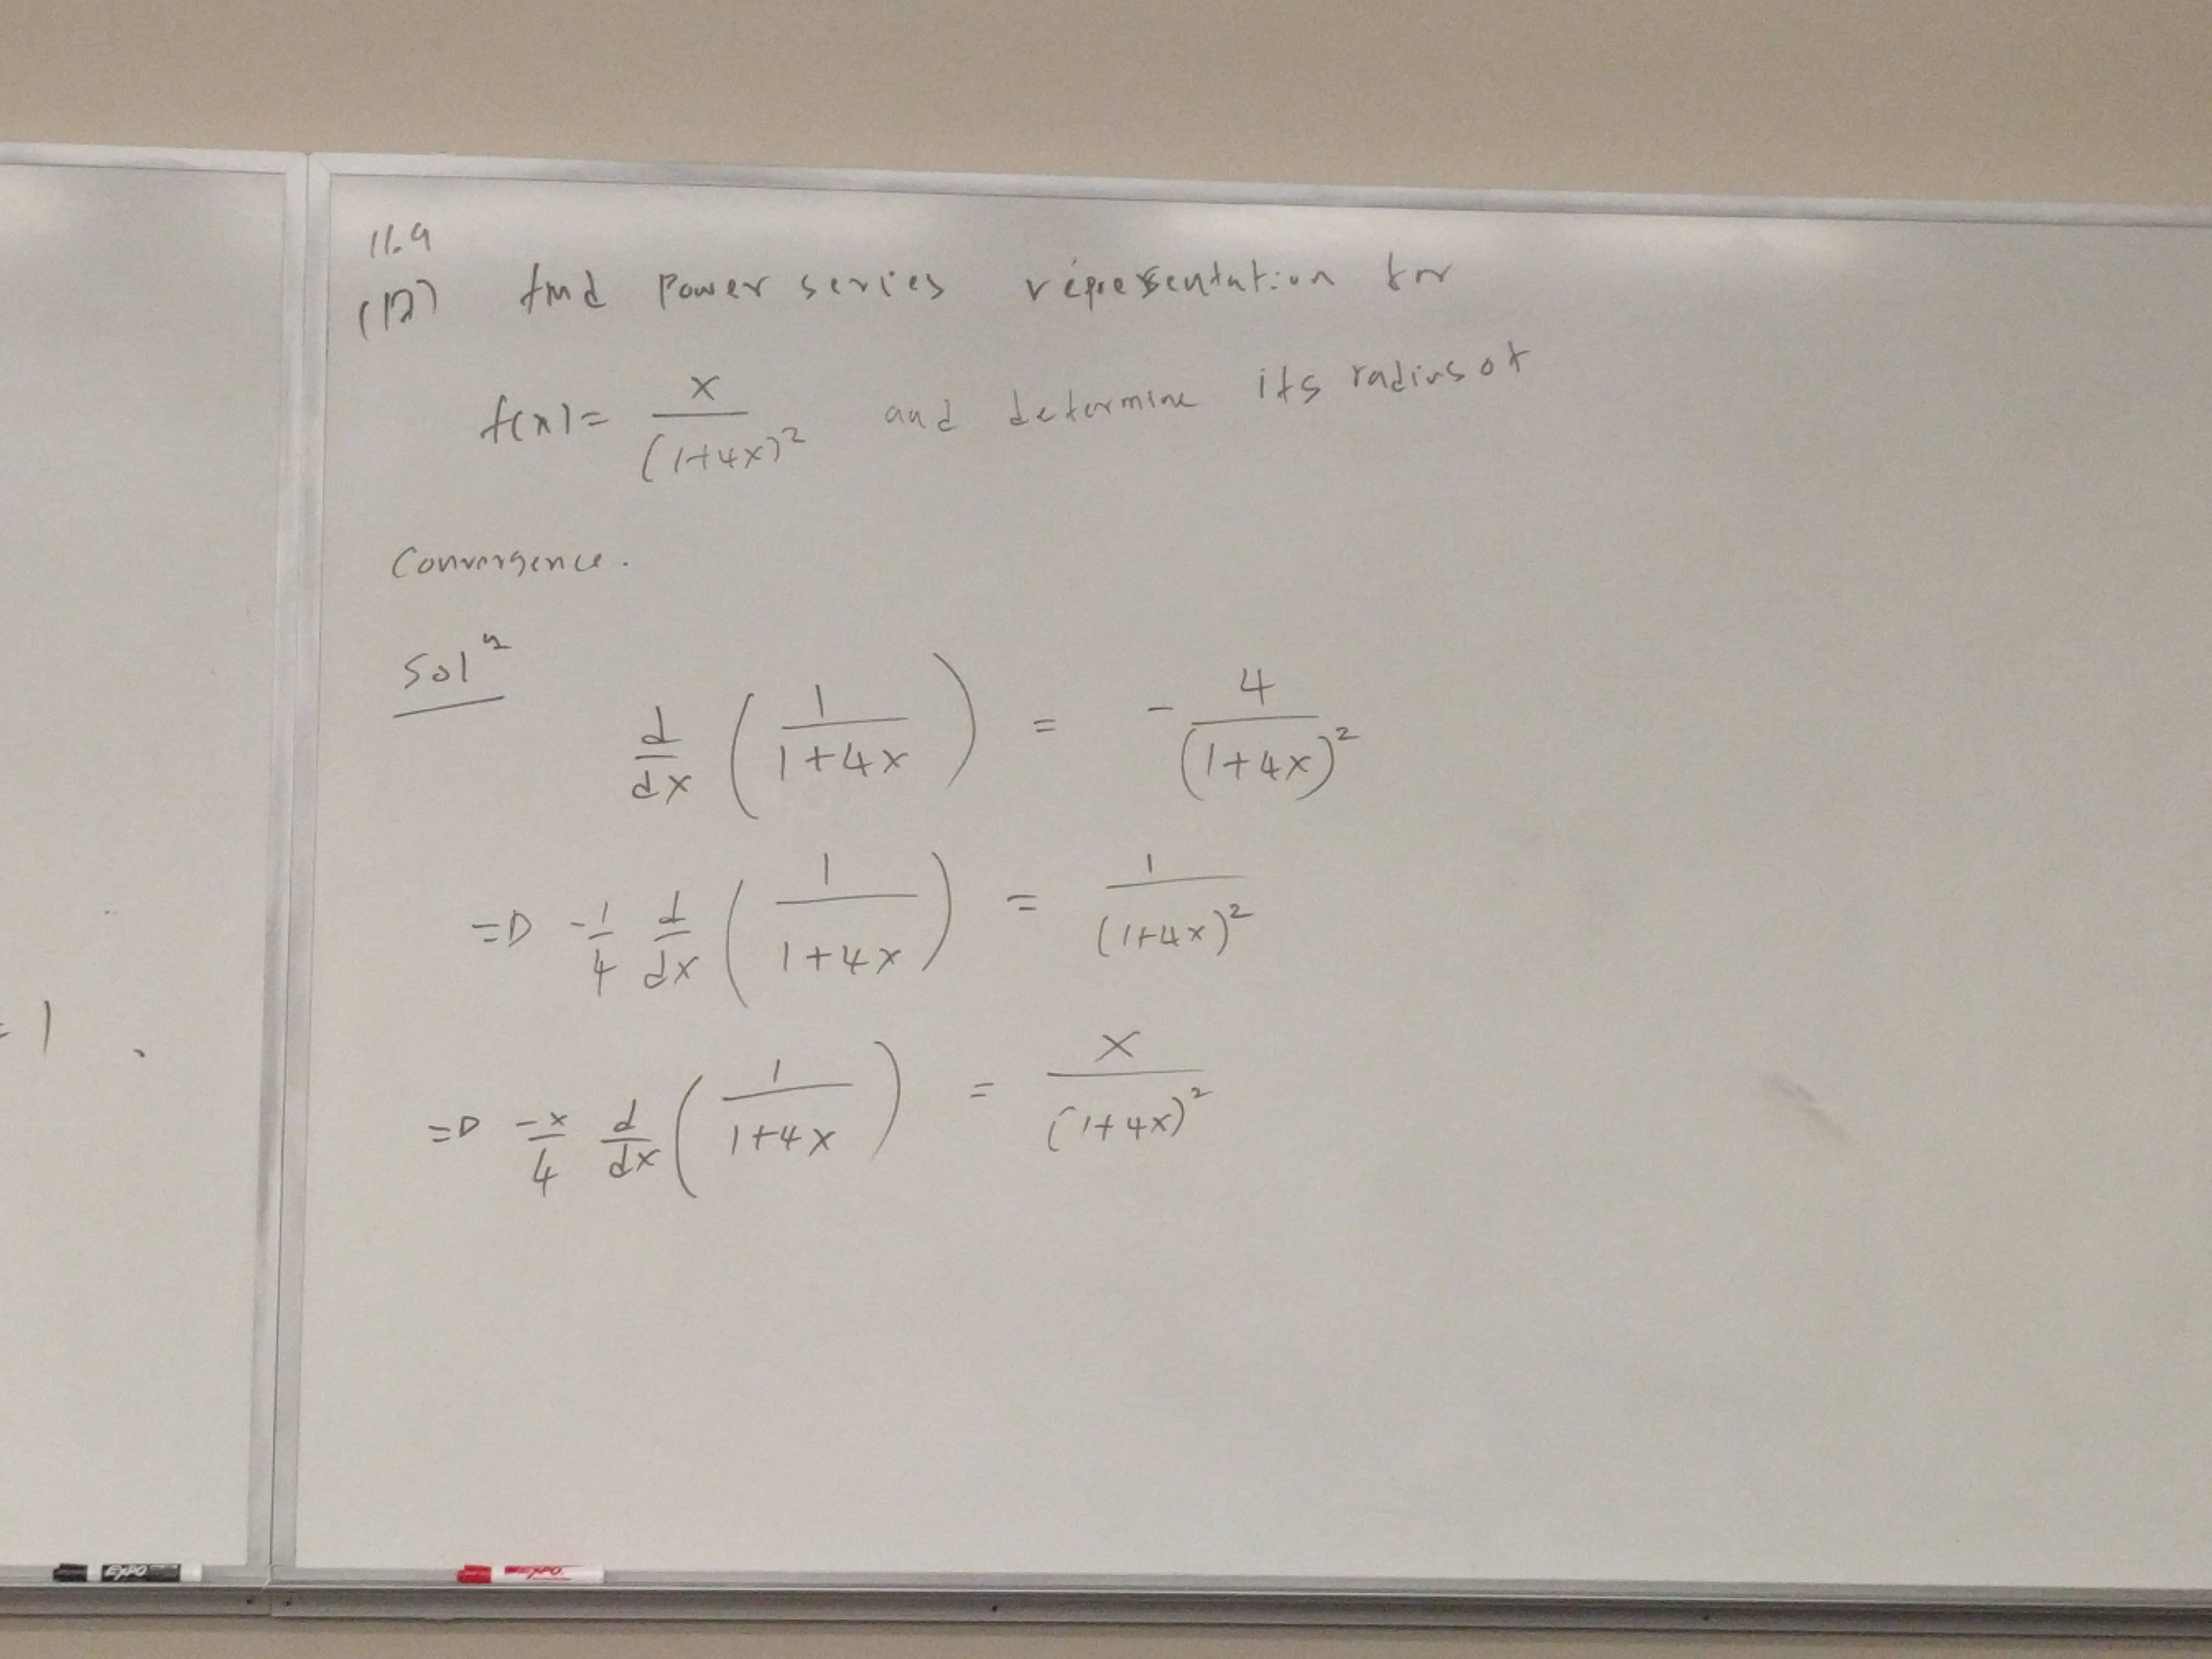 = 1 .
11.9
(12) find Power series representation for
f(x) = x/(1+4x)² and determine its radius of
Convergence.
Solⁿ
d/dx (1/(1+4x)) = - 4/(1+4x)²
=> -1/4 d/dx (1/(1+4x)) = 1/(1+4x)²
=> -x/4 d/dx (1/(1+4x)) = x/(1+4x)²
EXPO